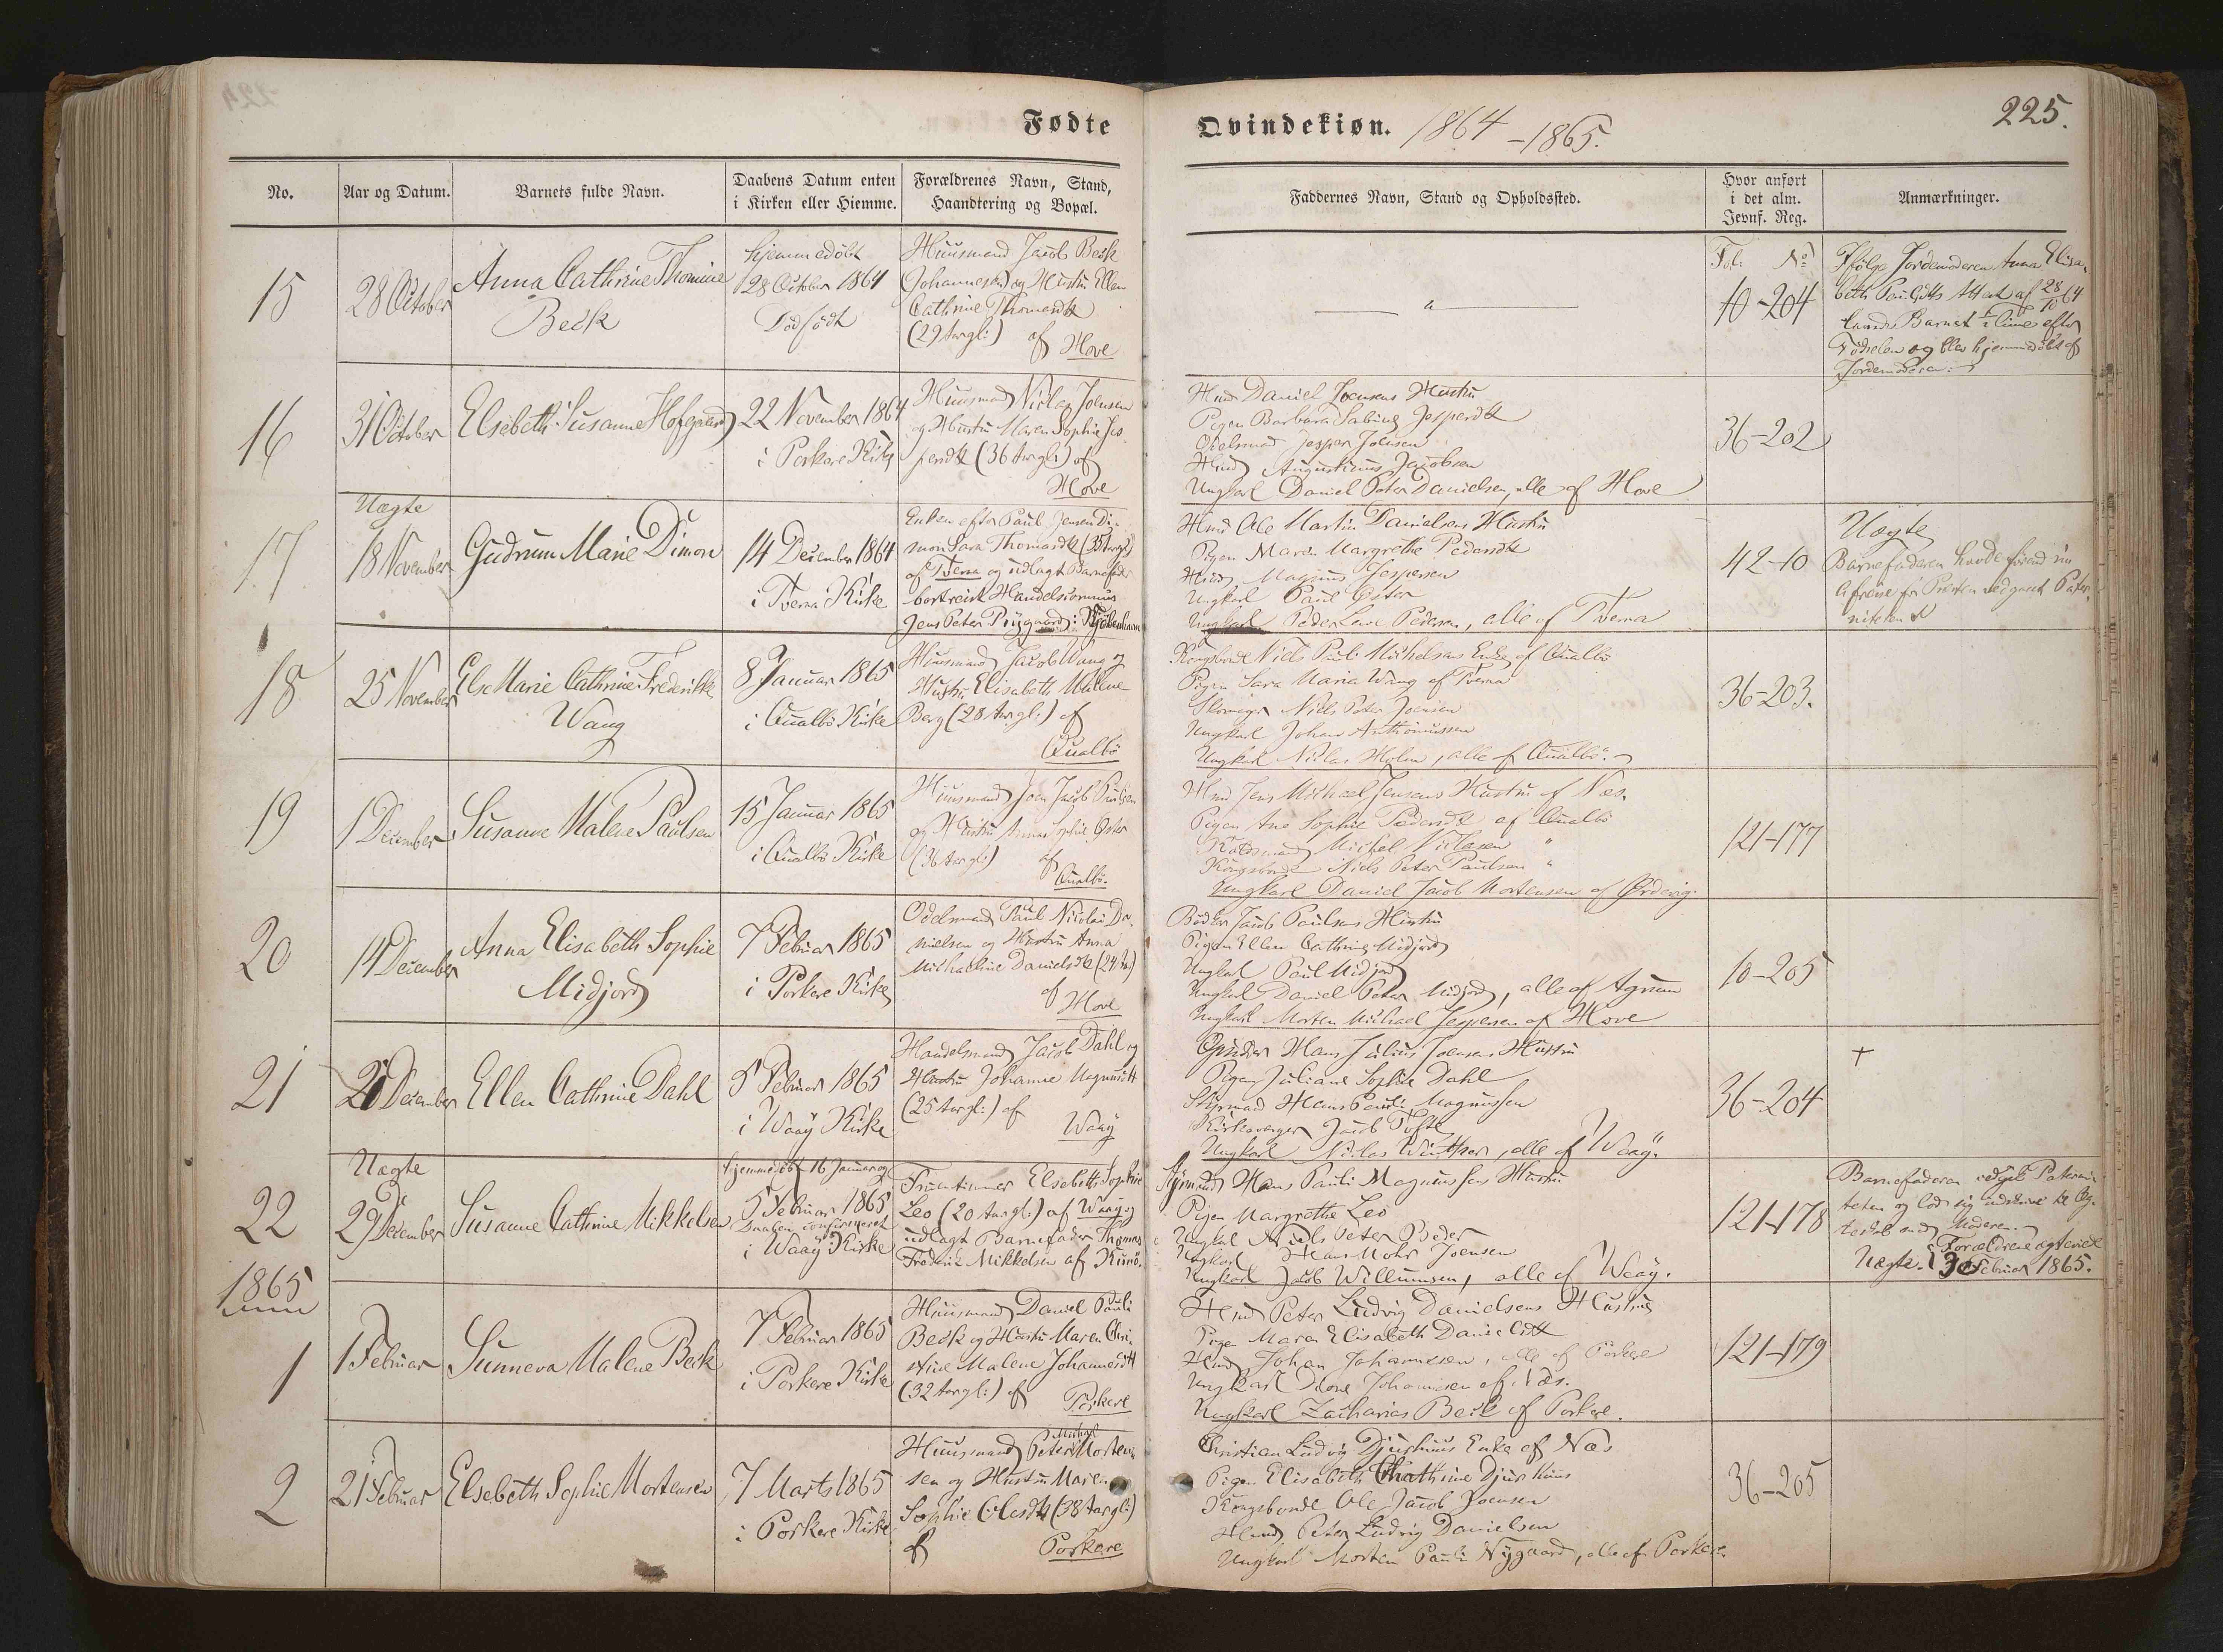 225.
Fødte
Qvindekiøn. 1864-1865.
No.
Aar og Datum.
Barnets fulde Navn.
Daabens Datum enten
i Kirken eller Hiemme.
Forældrenes Navn, Stand,
Haandtering og Bopæl.
Faddernes Navn, Stand og Opholdssted.
Hvor anført
i det alm.
Jevnf. Reg.
Anmærkninger.
15
28 October
Anna Cathrine Thomine
Beck
hjemmedøbt
28 October 1864
Dødfødt
Huusmand Jacob Beck
(Johannesen) og Hustru Ellen
Cathrine Thomasdtt
(29 Aar gl:) af Hove
"
Fol. No
10-204
Ifølge Jordemoderen Anna Elisa-
beth Attest af 28/10 64
Barnet Time efter
Fødselen og blev hjemmedøbt af
Jordemoderen
16
31 October
Elsebeth Susanne Hofgaard
22 November 1864
i Porkere Kirke
Huusmand Niclas Joensen
og Hustru Maren Sophie Jes-
persdtt (36 Aar gl:) af
Hove
Hmd Daniel Joensens Hustru
Pigen Barbara Sabine Jespersdtt
Odelsmand Jesper Joensen
Hmd Augustinus Jacobsen
Ungkarl Daniel Peter Danielsen, alle af Hove
36-202
17
Uægte
18 November
Gudrun Marie Dimon
14 December 1864
i Tverraa Kirke
Enken efter Paul Jensen Di-
mon Sara Thomasdtt (35 Aar gl)
af Tverraa og udlagt Barnefader
bortreist Handelscommis
Jens Peter Nygaard: Kjøbenhavn
Hmd Ole Martin Danielsens Hustru
Pigen Maren Margrethe Pedersdtt
Hmd Magnus Jespersen
Ungkarl Paul Øster
Ungkarl Peder Pedersen, alle af Tverraa
42-10
Uægte
Barnefaderen havde forend sin
Afreise for Præsten vedgaaet Pater-
niteten
18
25 November
Else Marie Cathrine Frederikke
Wang
8 Januar 1865
i Qualbø Kirke
Huusmand Jacob Wang og
Hustru Elisabeth Malene
Berg (28 Aar gl:) af
Qualbø
Kongsbonde Niels Pauli Michelsens Enke af Qualbø
Pigen Sara Maria Wang af Tverraa
Niels Peter Joensen
Ungkarl Johan Anthoniussen
Ungkarl Niclas Holm, alle af Qualbø.
36-203.
19
1 December
Susanne Malene Paulsen
15 Januar 1865
i Qualbø Kirke
Huusmand Joen Jacob Paulsen
og Hustru Anna Sophie Øster
(36 Aar gl:) af
Qualbø.
Hmd Jens Michael Jensens Hustru af Næs.
Pigen Ane Sophie Pedersdtt af Qualbø
Michel Niclasen "
Kongsbonde Niels Peter Paulsen "
Ungkarl Daniel Jacob Mortensen af Ørdevig.
121-177
20
14 December
Anna Elisabeth Sophie
Midjord
7 Februar 1865
i Porkere Kirke
Odelsmand Paul Nicolai Da-
nielsen og Hustru Anna
Michaeline Danielsdtt (24 Aar)
af Hove
Bødker Jacob Paulsens Hustru
Pigen Ellen Cathrine Midjord
Ungkarl Paul Midjord
Ungkarl Daniel Peter Midjord, alle af Agnum
Ungkarl Morten Michael Jespersen af Hove
10-205
21
20 December
Ellen Cathrine Dahl
5 Februar 1865
i Waag Kirke
Handelsmand Jacob Dahl og
Hustru Johanne Magnusdtt
(25 Aar gl:) af
Waag
Hans Julius Joensens Hustru
Pigen Juliane Sophie Dahl
Styrmand Hans Pauli Magnussen
Kirkeværger Jacob Tofte
Ungkarl Niclas Winther, alle af Waag.
36-204
+
22
Uægte
29 December
Susanne Cathrine Mikkelsen
hjemmedøbt 16 Januar og
5 Februar 1865
Daaben confirmeret
i Waag Kirke
Fruentimmer Elsebeth Sophie
Leo (20 Aar gl:) af Waag og
udlagt Barnefader Thomas
Frederik Mikkelsen af Kunø.
Styrmand Hans Pauli Magnussens Hustru
Pigen Margrethe Leo
Ungkarl Niels Peter Beder
Ungkarl Hans Mohr Joensen
Ungkarl Jacob Willumsen, alle af Waag.
121-178
Barnefaderen vedgik Paterni-
teten og lod sig indskrive til Æg-
teskab med Moderen.
Forældrene ægteviede
Uægte. 3 Februar 1865.
1865
1
1 Februar
Sunneva Malene Beck
7 Februar 1865
i Porkere Kirke
Huusmand Daniel Pauli
Beck og Hustru Maren Chri-
stine Malene Johannesdtt
(32 Aar gl:) af Porkere
Hmd Peter Ludvig Danielsens Hustru
Pigen Maren Elisabeth Danielsdtt
Hmd Johan Johannesen, alle af Porkere
Ungkarl Johannesen af Næs.
Ungkarl Zacharias Beck af Porkere.
121-179
2
21 Februar
Elsebeth Sophie Mortensen
7 Marts 1865
i Porkere Kirke
Huusmand Peter Michel Morten-
sen og Hustru Maren
Sophie Olesdtt (38 Aar gl:)
af Porkere
Christian Ludvig Djurhuus Enke af Næs
Pigen Elisabeth Chathrine Djurhuus
Kongsbonde Ole Jacob Joensen
Hmd Peter Ludvig Danielsen
Ungkarl Morten Pauli Nygaard, alle af Porkere
36-205